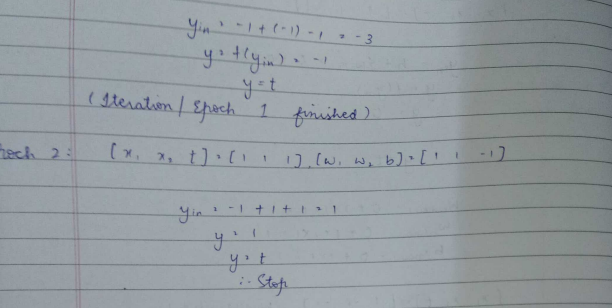 yin = -1 + (-1) - 1 = -3
y = f(yin) = -1
y = t
(Iteration / Epoch 1 finished)
poch 2: [x1 x2 t] = [1 1 1] [w1 w2 b] = [1 1 -1]
yin = -1 + 1 + 1 = 1
y = 1
y = t
∴ Stop